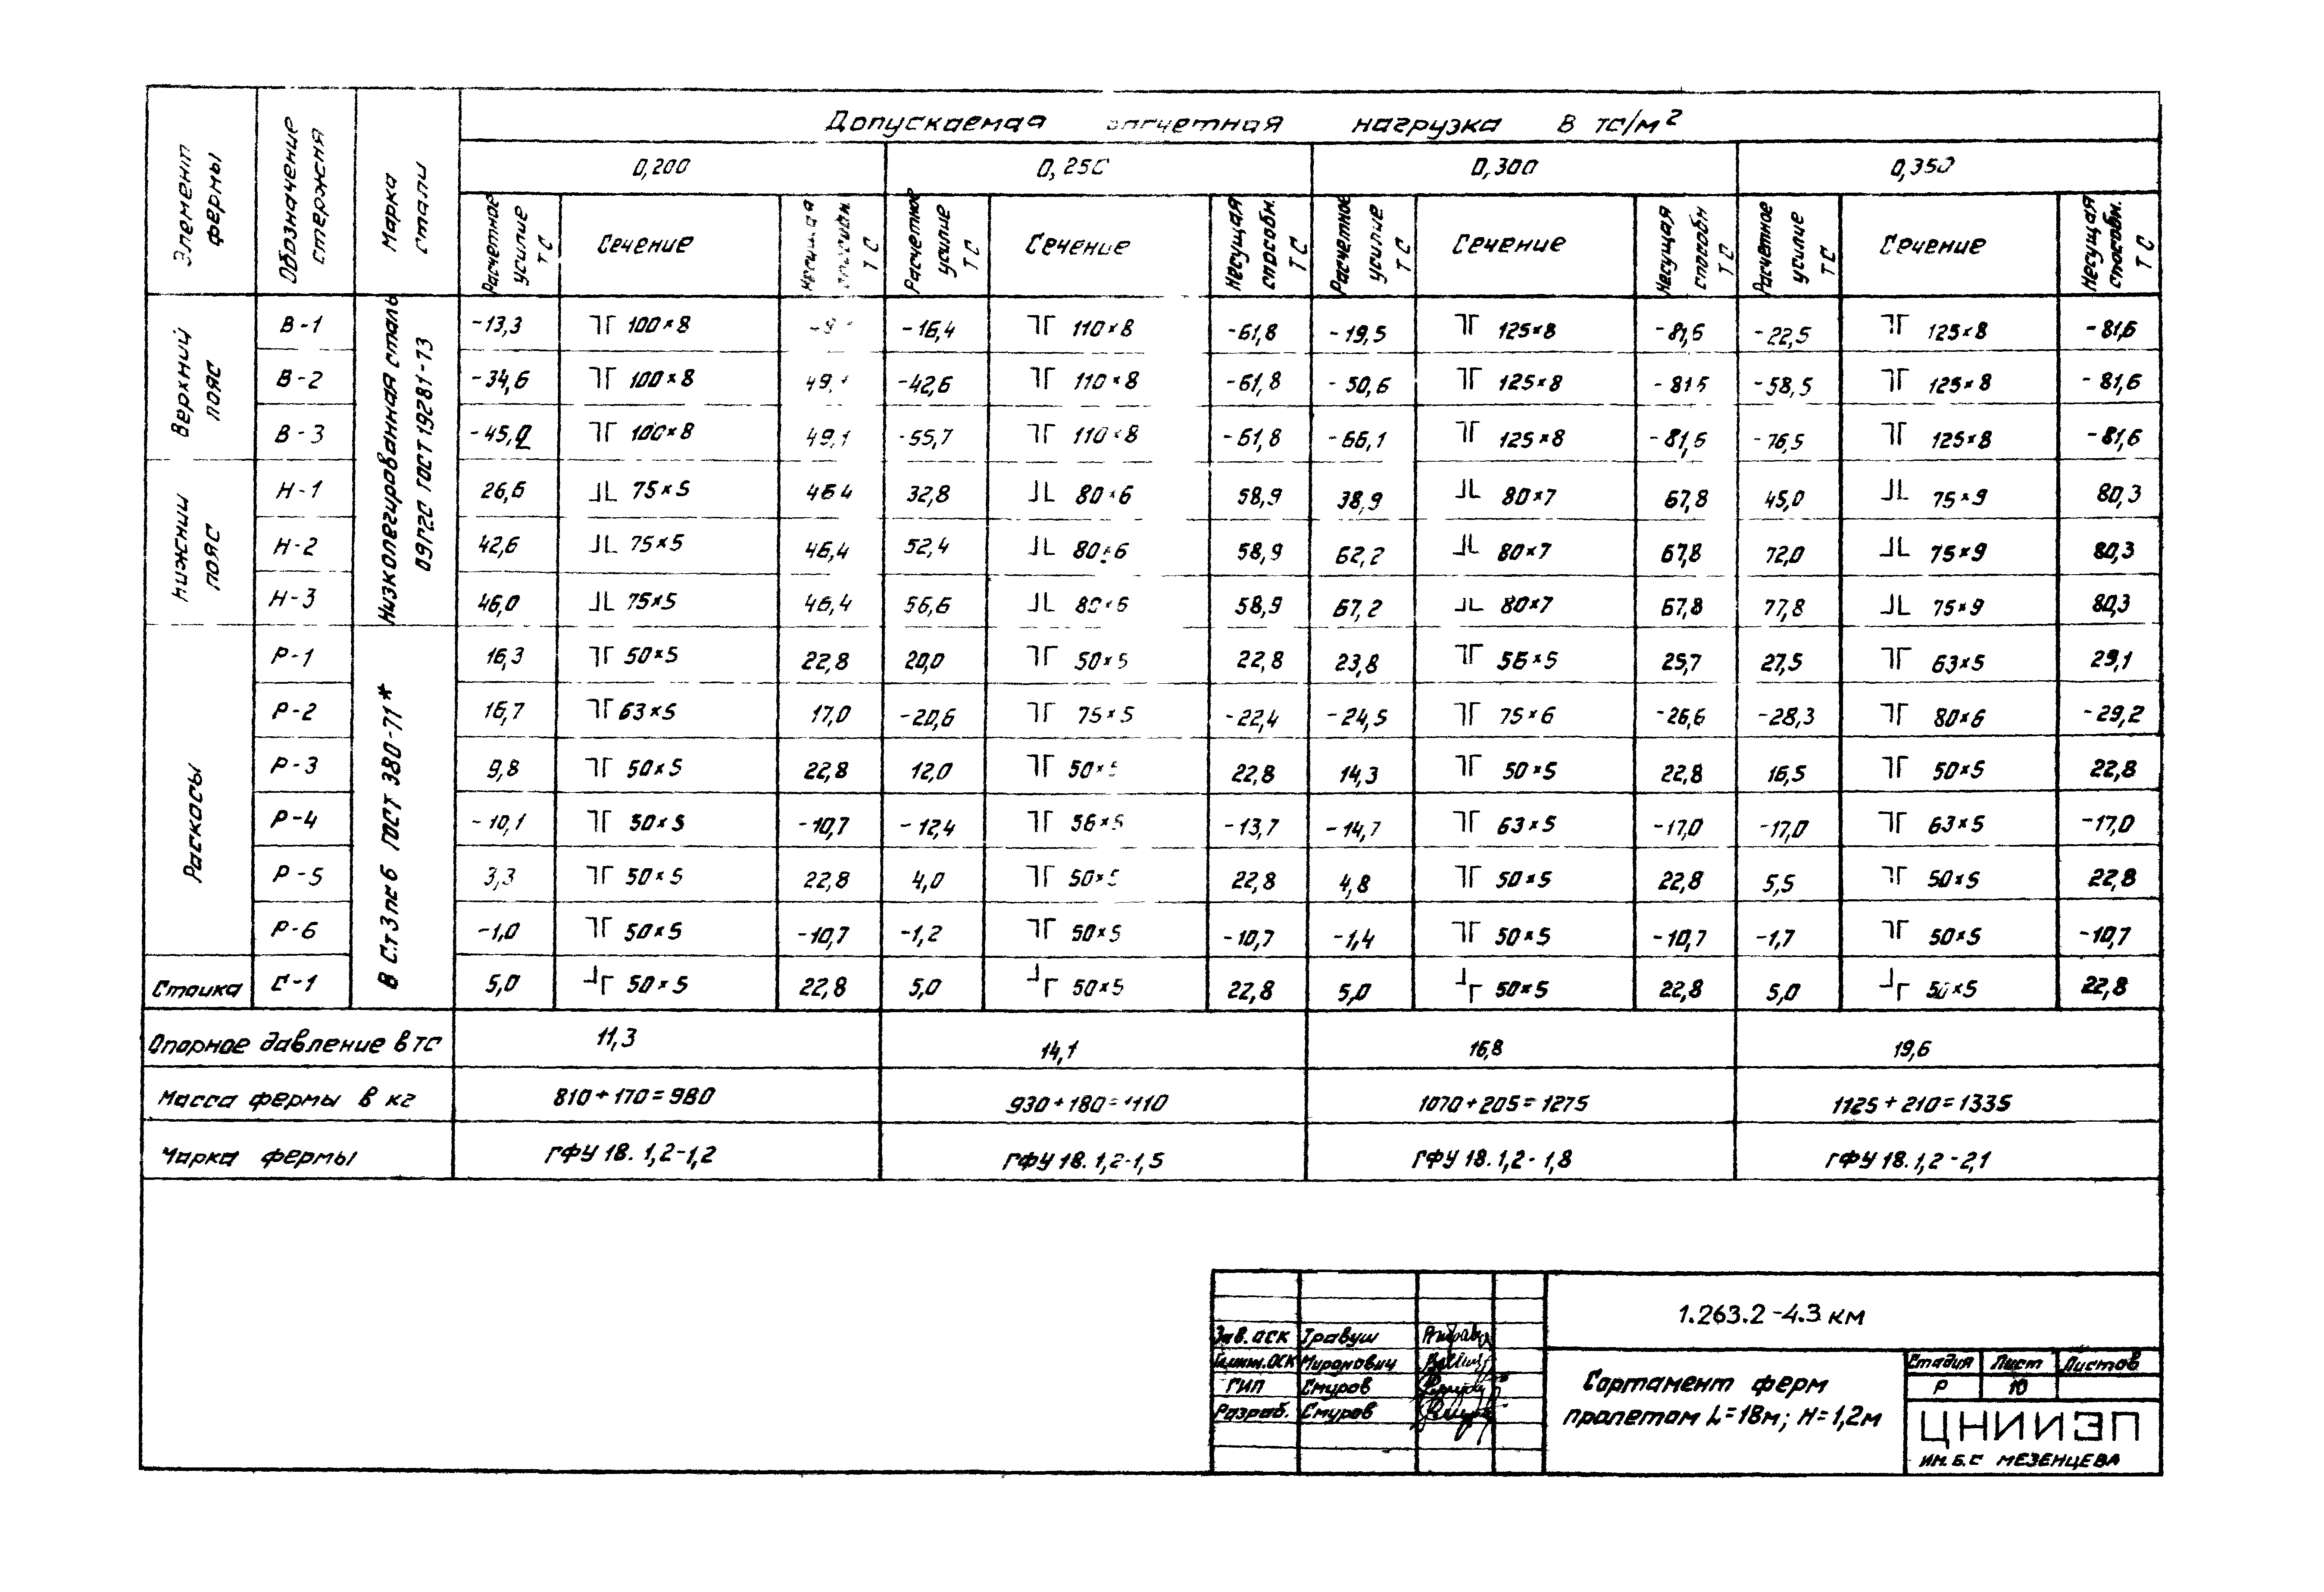 Допускаемая расчетная нагрузка в тс/м²
Элемент фермы | Обозначение стержня | Марка стали | 0,200 | 0,250 | 0,300 | 0,350
Расчетное усилие тс | Сечение | Несущая способн. тс | Расчетное усилие тс | Сечение | Несущая способн. тс | Расчетное усилие тс | Сечение | Несущая способн тс | Расчетное усилие тс | Сечение | Несущая способн. тс
Верхний пояс
Низколегированная сталь 09Г2С ГОСТ 19281-73
В-1 | -13,3 | 100×8 | | -16,4 | 110×8 | -61,8 | -19,5 | 125×8 | -81,6 | -22,5 | 125×8 | -81,6
В-2 | -34,6 | 100×8 | 49,1 | -42,6 | 110×8 | -61,8 | -50,6 | 125×8 | -81,6 | -58,5 | 125×8 | -81,6
В-3 | -45,0 | 100×8 | 49,1 | -55,7 | 110×8 | -61,8 | -66,1 | 125×8 | -81,6 | -76,5 | 125×8 | -81,6
Нижний пояс
Н-1 | 26,6 | 75×5 | 46,4 | 32,8 | 80×6 | 58,9 | 38,9 | 80×7 | 67,8 | 45,0 | 75×9 | 80,3
Н-2 | 42,6 | 75×5 | 46,4 | 52,4 | 80×6 | 58,9 | 62,2 | 80×7 | 67,8 | 72,0 | 75×9 | 80,3
Н-3 | 46,0 | 75×5 | 46,4 | 56,6 | 80×6 | 58,9 | 67,2 | 80×7 | 67,8 | 77,8 | 75×9 | 80,3
Раскосы
В Ст3пс6 ГОСТ 380-71*
Р-1 | 16,3 | 50×5 | 22,8 | 20,0 | 50×5 | 22,8 | 23,8 | 56×5 | 25,7 | 27,5 | 63×5 | 29,1
Р-2 | 16,7 | 63×5 | 17,0 | -20,6 | 75×5 | -22,4 | -24,5 | 75×6 | -26,6 | -28,3 | 80×6 | -29,2
Р-3 | 9,8 | 50×5 | 22,8 | 12,0 | 50×5 | 22,8 | 14,3 | 50×5 | 22,8 | 16,5 | 50×5 | 22,8
Р-4 | -10,1 | 50×5 | -10,7 | -12,4 | 56×5 | -13,7 | -14,7 | 63×5 | -17,0 | -17,0 | 63×5 | -17,0
Р-5 | 3,3 | 50×5 | 22,8 | 4,0 | 50×5 | 22,8 | 4,8 | 50×5 | 22,8 | 5,5 | 50×5 | 22,8
Р-6 | -1,0 | 50×5 | -10,7 | -1,2 | 50×5 | -10,7 | -1,4 | 50×5 | -10,7 | -1,7 | 50×5 | -10,7
Стойка | С-1 | 5,0 | 50×5 | 22,8 | 5,0 | 50×5 | 22,8 | 5,0 | 50×5 | 22,8 | 5,0 | 50×5 | 22,8
Опорное давление в тс | 11,3 | 14,1 | 16,8 | 19,6
Масса фермы в кг | 810+170=980 | 930+180=1110 | 1070+205=1275 | 1125+210=1335
Марка фермы | ГФУ 18.1,2-1,2 | ГФУ 18.1,2-1,5 | ГФУ 18.1,2-1,8 | ГФУ 18.1,2-2,1
1.263.2-4.3 КМ
Зав. ОСК Травуш
Гл.инж.ОСК Миронович
ГИП Смуров
Разраб. Смуров
Сортамент ферм
пролетом L=18м; Н=1,2м
Стадия Лист Листов
Р 10
ЦНИИЭП
ИМ. Б.С МЕЗЕНЦЕВА